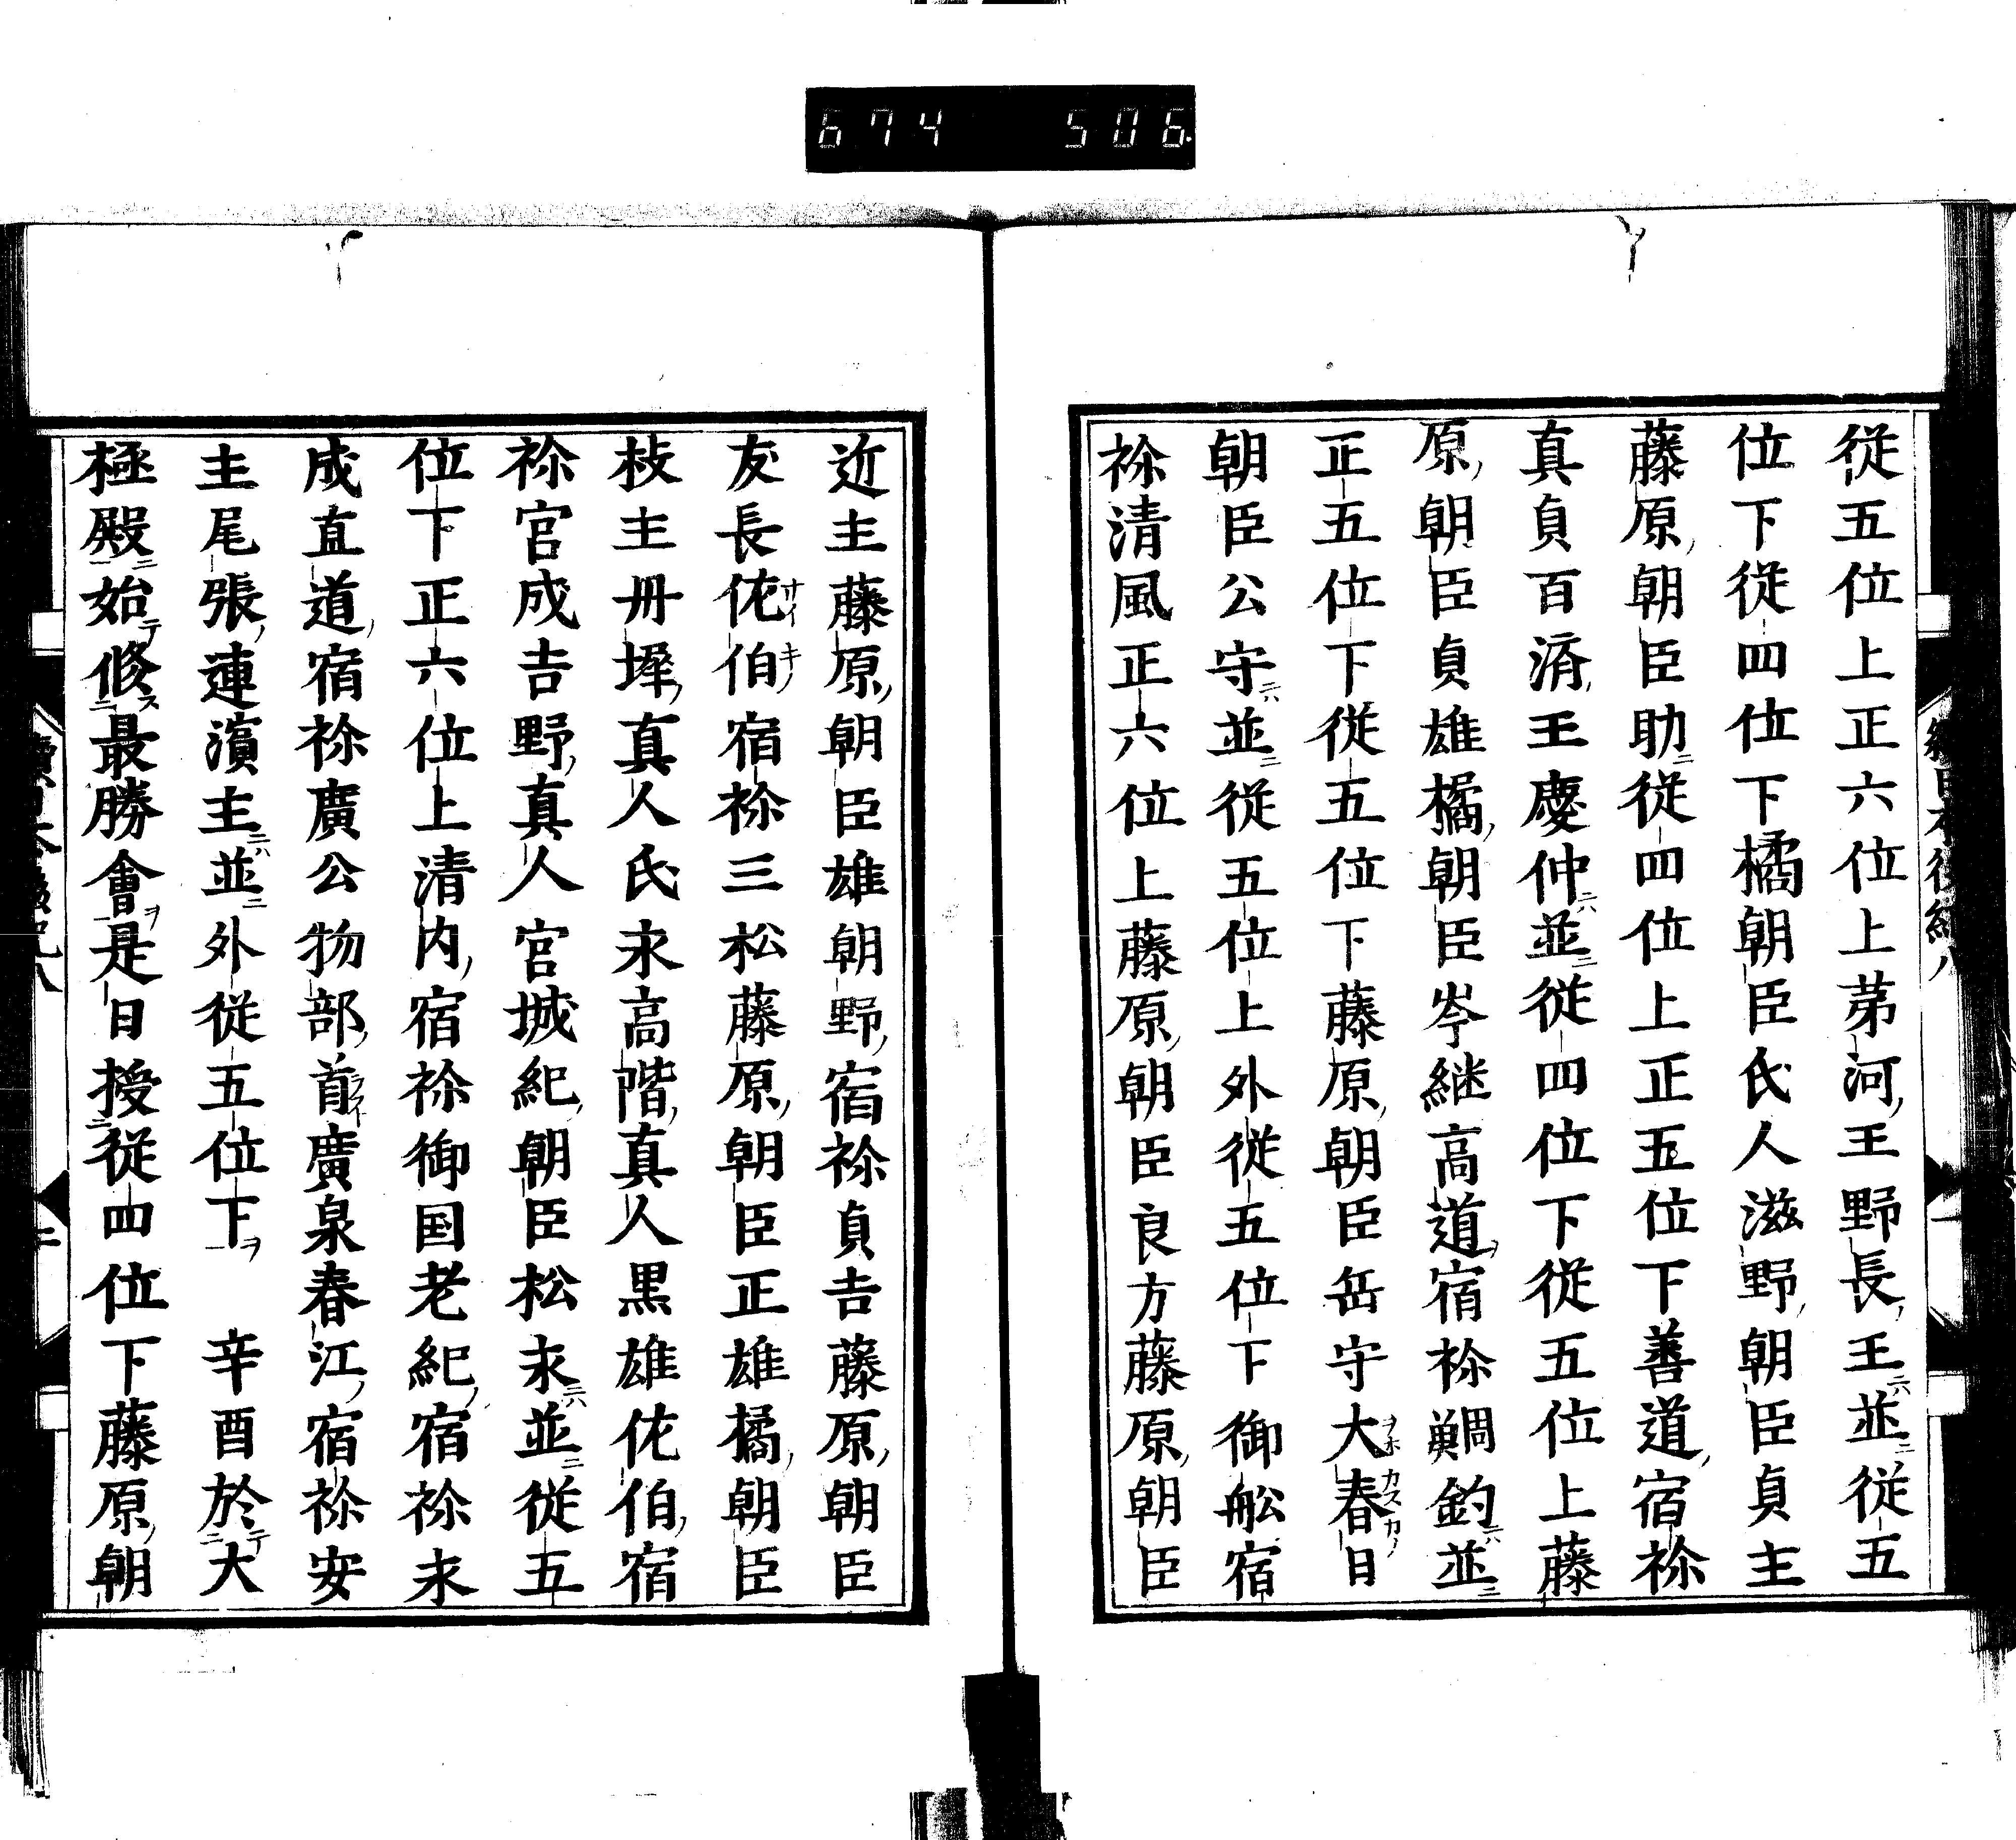 674 506
従五位上正六位上茅河王野長王並従五
位下従四位下橘朝臣氏人滋野朝臣貞主
藤原朝臣助従四位上正五位下善道宿祢
真貞百済王慶仲並従四位下従五位上藤
原朝臣貞雄橘朝臣岑継高道宿祢鯛釣並
正五位下従五位下藤原朝臣岳守大春日
朝臣公守並従五位上外従五位下御舩宿
祢清風正六位上藤原朝臣良方藤原朝臣
近主藤原朝臣雄朝野宿祢貞吉藤原朝臣
友長佐伯宿祢三松藤原朝臣正雄橘朝臣
枝主丹墀真人氏永高階真人黒雄佐伯宿
祢宮成吉野真人宮城紀朝臣松永並従五
位下正六位上清内宿祢御国老紀宿祢永
成直道宿祢廣公物部首廣泉春江宿祢安
主尾張連濱主並外従五位下 辛酉於大
極殿始修最勝會是日授従四位下藤原朝